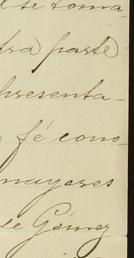 se toma-
tra parte
presenta-
fé cono-
mayores
de Gómez